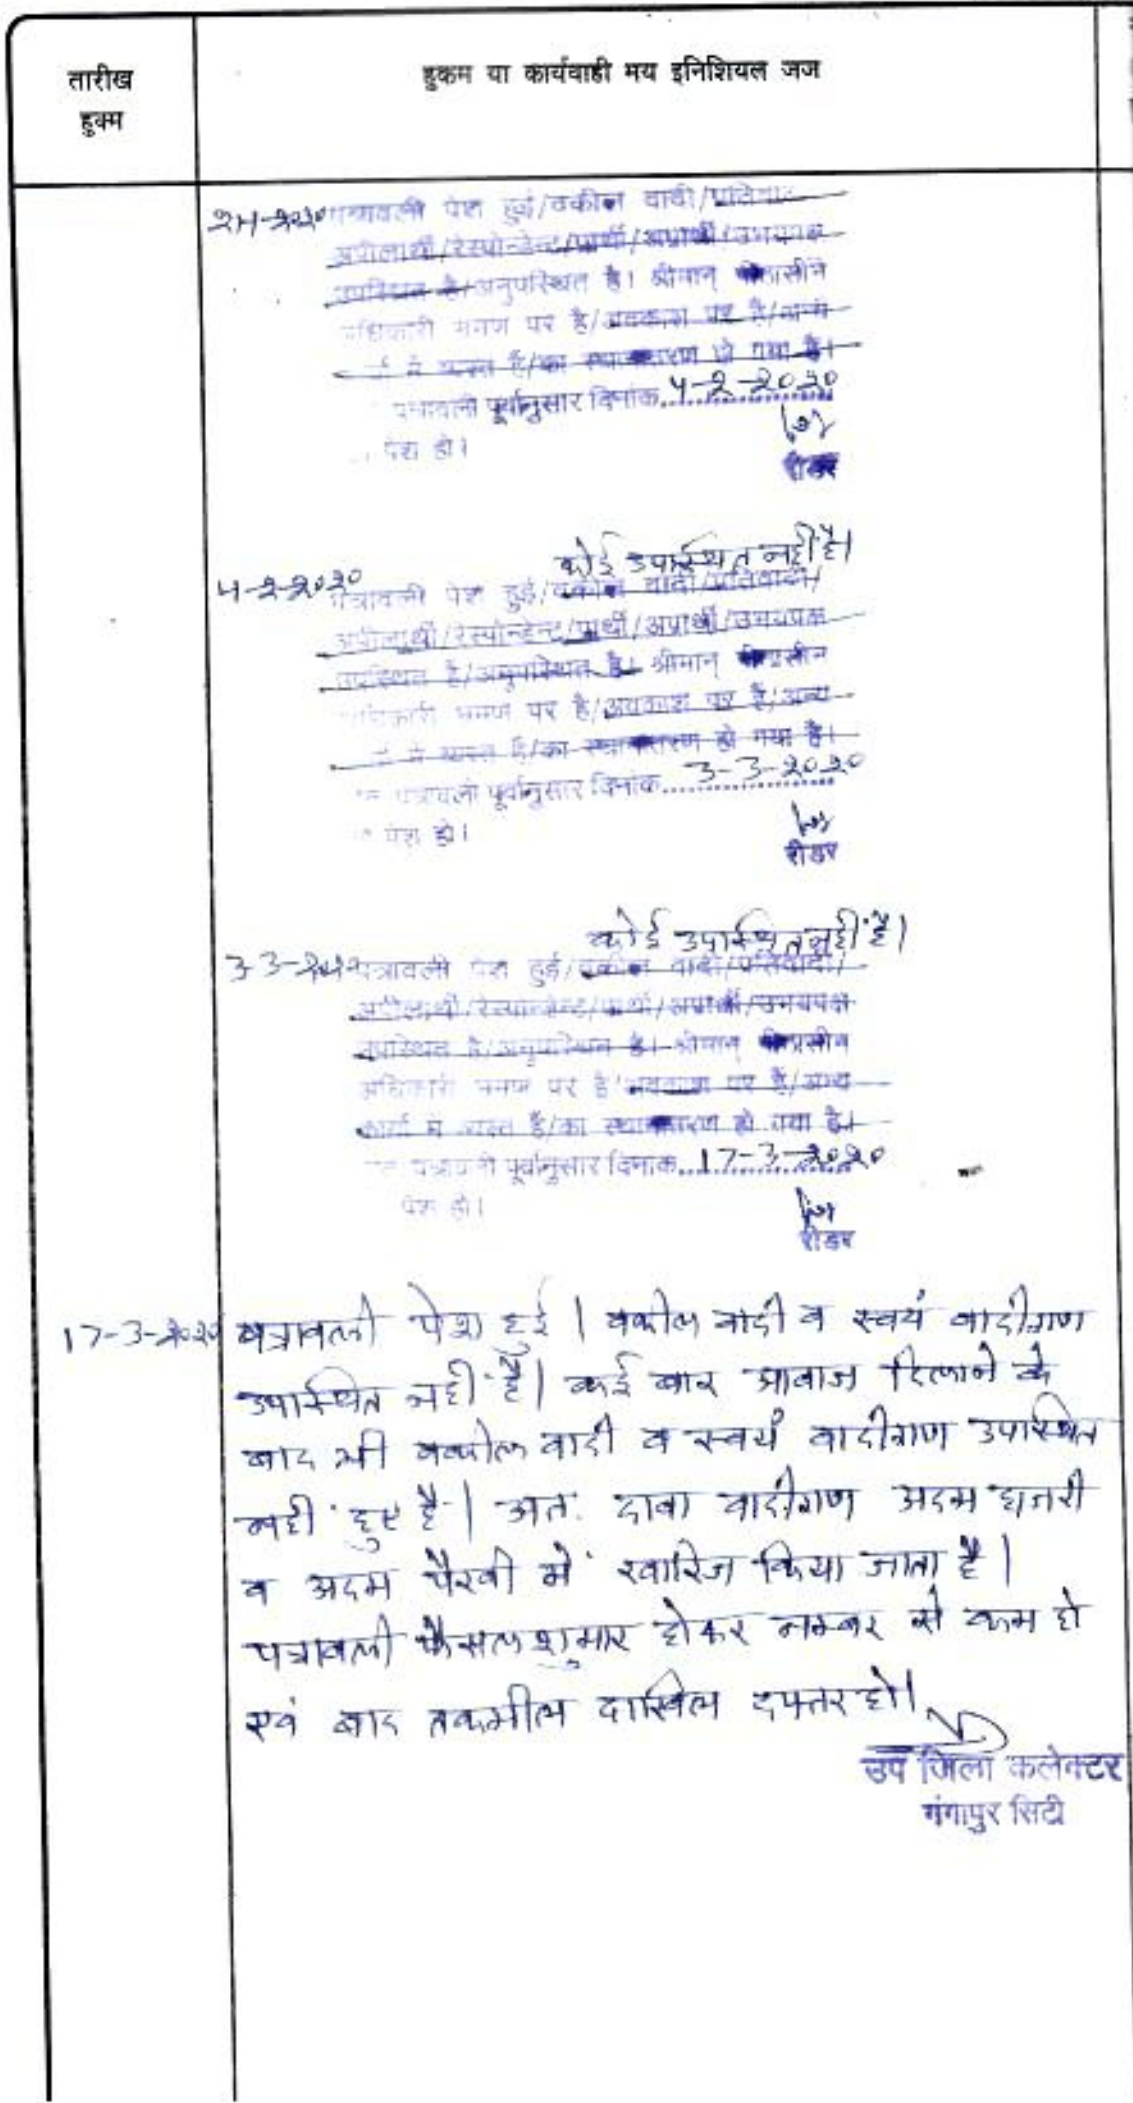 तारीख
हुक्म
हुकम या कार्यवाही मय इनिशियल जज
पत्रावली पेश हुई/वकील वादी/प्रतिवादी
अपीलार्थी/रेस्पोन्डेन्ट/प्रार्थी/अप्रार्थी/उभयपक्ष
उपस्थित है/अनुपस्थित है। श्रीमान् पीठासीन
अधिकारी भ्रमण पर है/अवकाश पर है/अन्य
में व्यस्त है/का स्थानान्तरण हो गया है।
पत्रावली पूर्वानुसार दिनांक 4-2-2020
पेश हो।
रीडर
कोई उपस्थित नहीं है।
4-2-2020 पत्रावली पेश हुई/वकील वादी/प्रतिवादी/
अपीलार्थी/रेस्पोन्डेन्ट/प्रार्थी/अप्रार्थी/उभयपक्ष
उपस्थित है/अनुपस्थित है। श्रीमान् पीठासीन
अधिकारी भ्रमण पर है/अवकाश पर है/अन्य
में व्यस्त है/का स्थानान्तरण हो गया है।
पत्रावली पूर्वानुसार दिनांक 3-3-2020
पेश हो।
रीडर
कोई उपस्थित नहीं है।
3-3-2020 पत्रावली पेश हुई/वकील वादी/प्रतिवादी/
अपीलार्थी/रेस्पोन्डेन्ट/प्रार्थी/अप्रार्थी/उभयपक्ष
उपस्थित है/अनुपस्थित है। श्रीमान् पीठासीन
अधिकारी भ्रमण पर है/अवकाश पर है/अन्य
कार्यो में व्यस्त है/का स्थानान्तरण हो गया है।
पत्रावली पूर्वानुसार दिनांक 17-3-2020
पेश हो।
रीडर
17-3-2020 पत्रावली पेश हुई। वकील वादी व स्वयं वादीगण
उपस्थित नहीं है। कई बार आवाज दिलाने के
बाद भी वकील वादी व स्वयं वादीगण उपस्थित
नहीं हुए है। अत: दावा वादीगण अदम हाजरी
व अदम पैरवी में खारिज किया जाता है।
पत्रावली फैसल शुमार होकर नम्बर से कम हो
एवं बाद तकमील दाखिल दफ्तर हो।
उप जिला कलेक्टर
गंगापुर सिटी